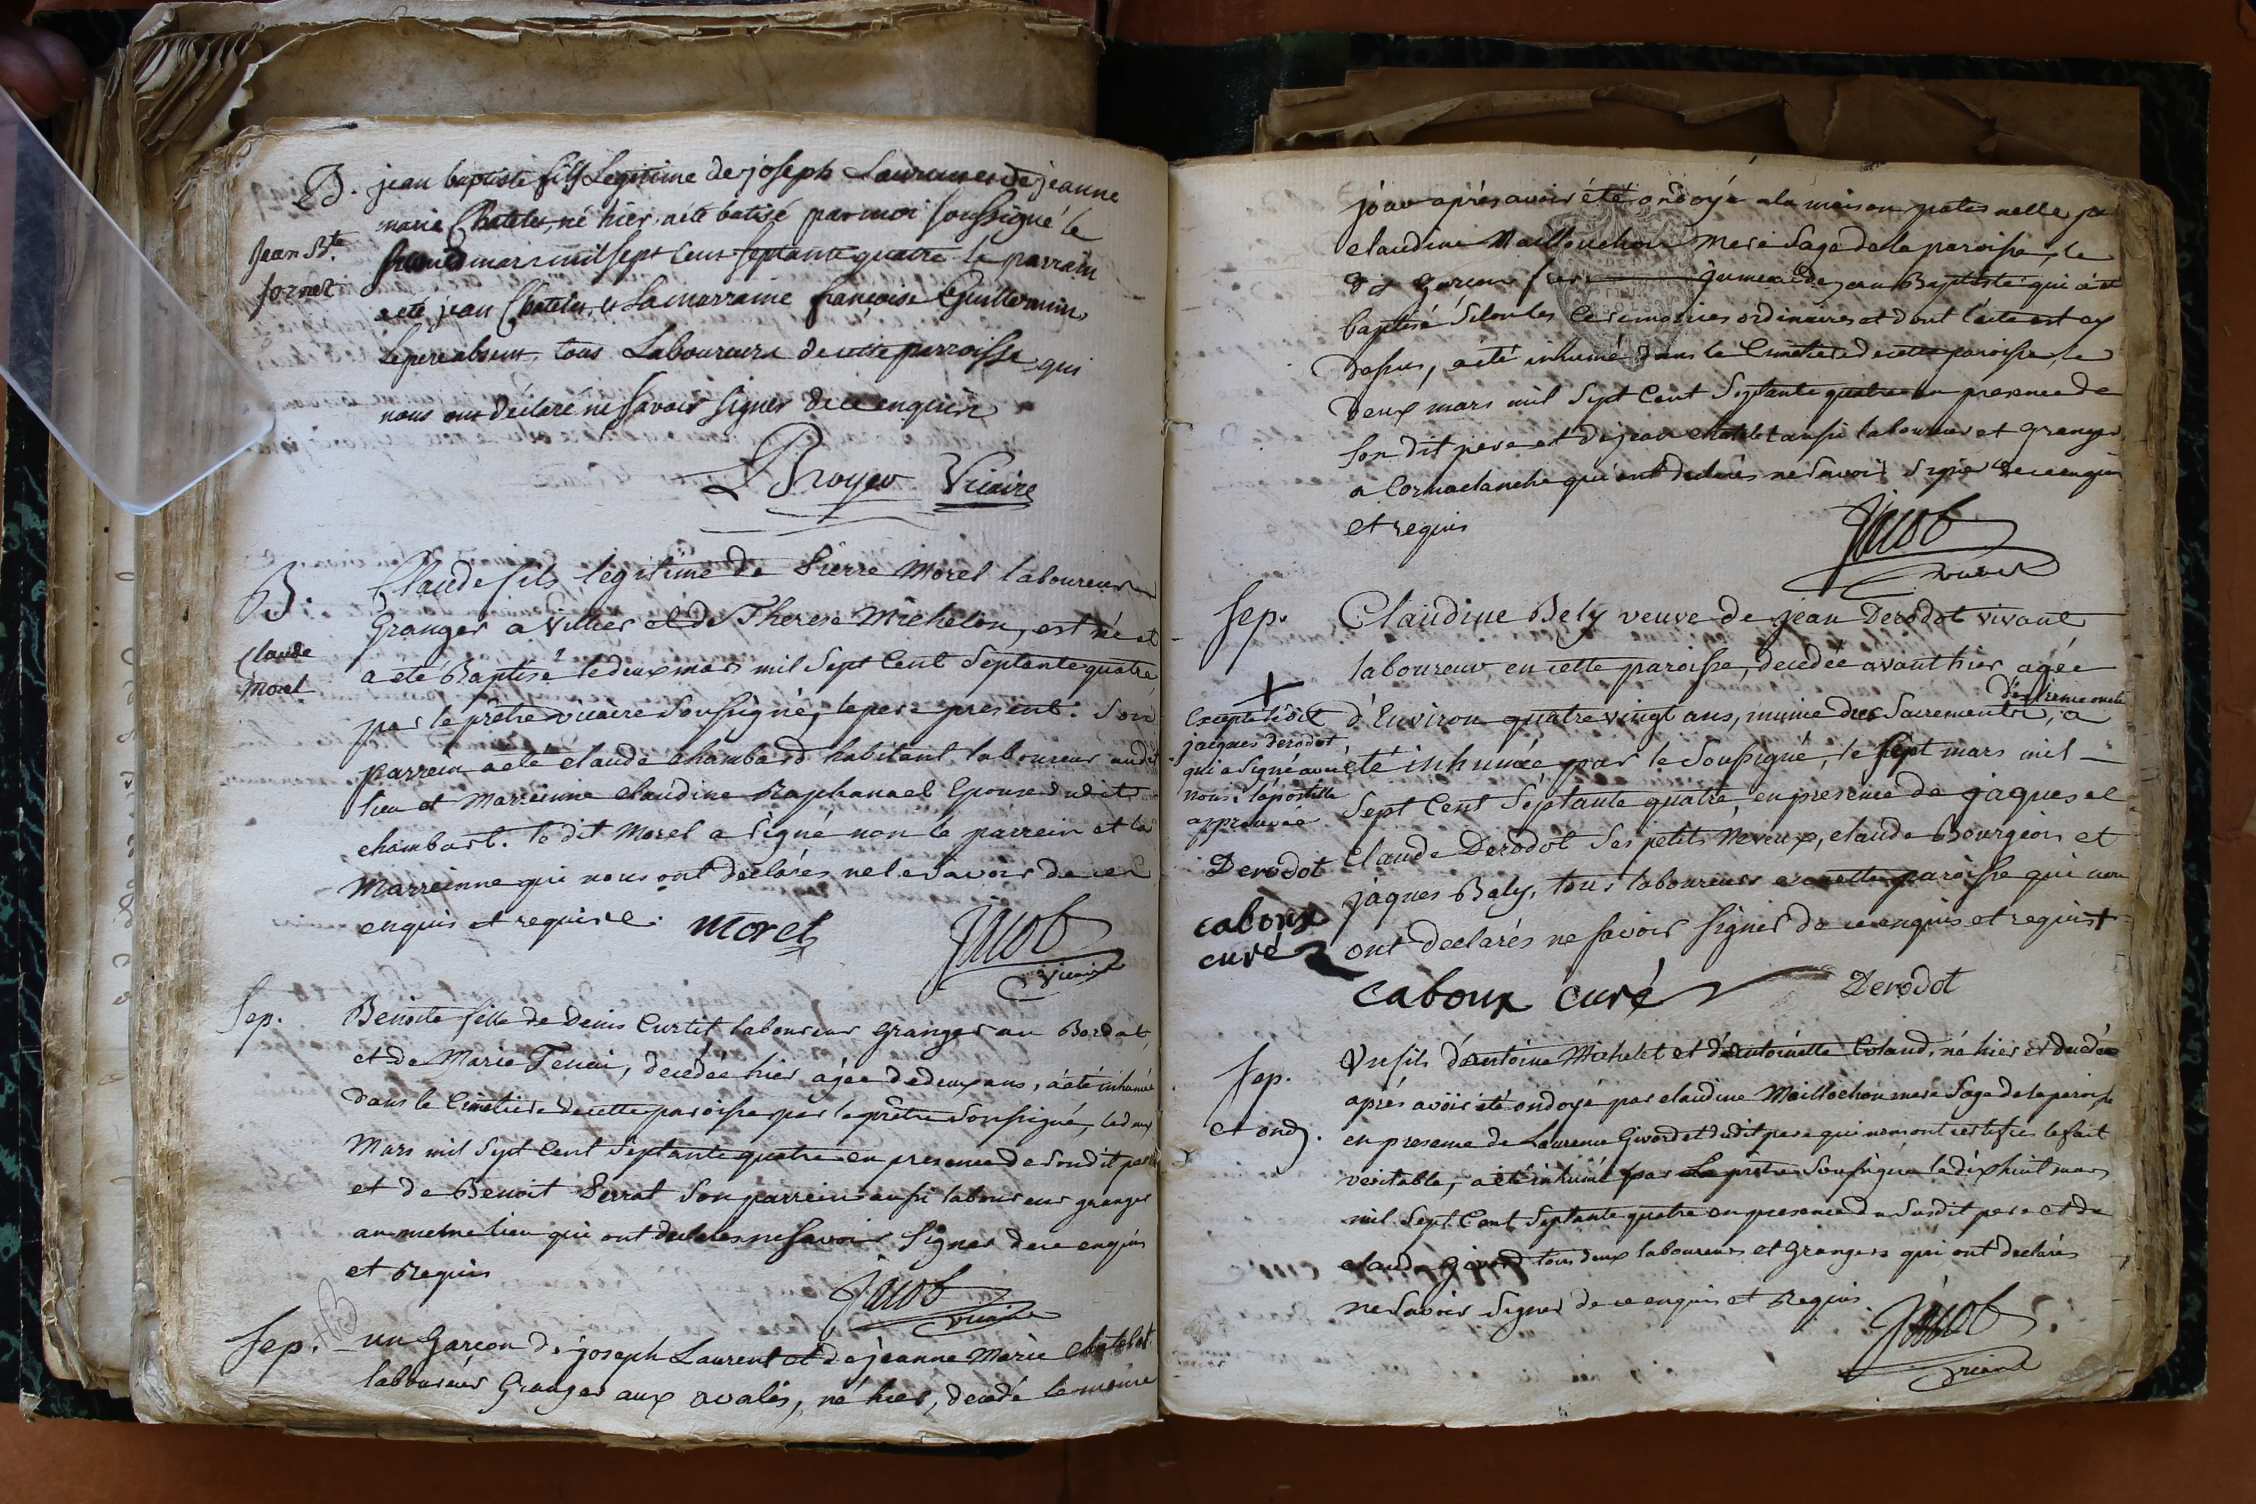 B. jean baptiste fils Legitime de joseph Laurent et de jeanne
marie Chatelet, né hier, a été batisé par moi soussigné le
Jean Bte
mars mil sept cent septante quatre le parrain
a été jean Chatelet et la marraine françoise Guillermin,
le pere absent, tous Laboureurs de cette parroisse qui
nous ont déclaré ne savoir signer de ce enquis
Vicaire
B. Claude fils légitime de Pierre Morel laboureur
Granger a Villier et de Therese Michelon, est né et
Claude
Morel
a eté Baptisé le deux mars mil Sept Cent Septante quatre
par le prêtre vicaire Soussigné, le pere present. Son
parrein a eté claude chambard habitant laboureur audit
lieu et Marreinne claudine Raphanael Epouse dudit
chambart. le dit Morel a signé non le parrein et la
Marreinne qui nous ont declarés ne le Savoir de ce
enquis et requise. Morel
Jacob
Vicaire
Sep. Benoite fille de Denis Curtit laboureur granger au Bordat
et de Marie Tenin, decedée hier agée de deux ans, a été inhumée
dans le Cimetiere de cette paroisse par le prêtre Soussigné, le deux
Mars mil Sept Cent Septante quatre en presence de Son dit pere
et de Benoit Perrat Son parrein aussi laboureur granger
au meme lieu qui ont declarés ne Savoir Signer de ce enquis
et Requis
Jacob
vicaire
Sep. un Garçon de joseph Laurent et de jeanne Marie Chatelet
laboureur Granger aux avalés, né hier, decedé le meme
jour aprés avoir été ondoyé a la maison paternelle par
claudine Maillouchon Mere Sage de la paroisse, le
dit Garçon frere jumeau de jean Baptiste qui a été
baptisé Selon les Ceremonies ordinaires et dont l'acte est cy
dessus, a été inhumé dans le Cimetiere de cette paroisse, le
deux mars mil Sept Cent Septante quatre en presence de
Son dit pere et de jean chatelet aussi laboureur et granger
a Cornaclanche qui ont declarés ne Savoir Signer de ce enquis
et requis
Jacob
vicaire
Sep. Claudine Bely veuve de jean Derodot vivant
laboureur en cette paroisse, decedée avant hier agée
d'extreme onction
d'Environ quatre vingt ans, munie des Sacrements, a
+
Excepté ledit
jacques derodot
qui a signé avec
nous. l'apostille
approuvée
Derodot
caboux
curé
été inhumée par le Soussigné, le sept mars mil
Sept Cent Septante quatre, en presence de jaques et
Claude Derodot Ses petits Neveux, claude Bourgeois et
jaques Bely, tous laboureurs en cette paroisse qui nous
ont declarés ne savoir signer de ce enquis et requis +
caboux curé Derodot
Sep.
et ond.
Un fils d'antoine Michelet et d'antoinette Coland, né hier et decedé
aprés avoir été ondoyé par claudine Maillochon mere Sage de la paroisse
en presence de Laurence Givord et dudit pere qui nous ont certifiés le fait
veritable, a été inhumé par Le prêtre Soussigné le dix huit mars
mil Sept Cent Septante quatre en presence du Susdit pere et de
claude Givord tous deux laboureurs et Grangers qui ont declarés
ne Savoir Signer de ce enquis et Requis
Jacob
vicaire